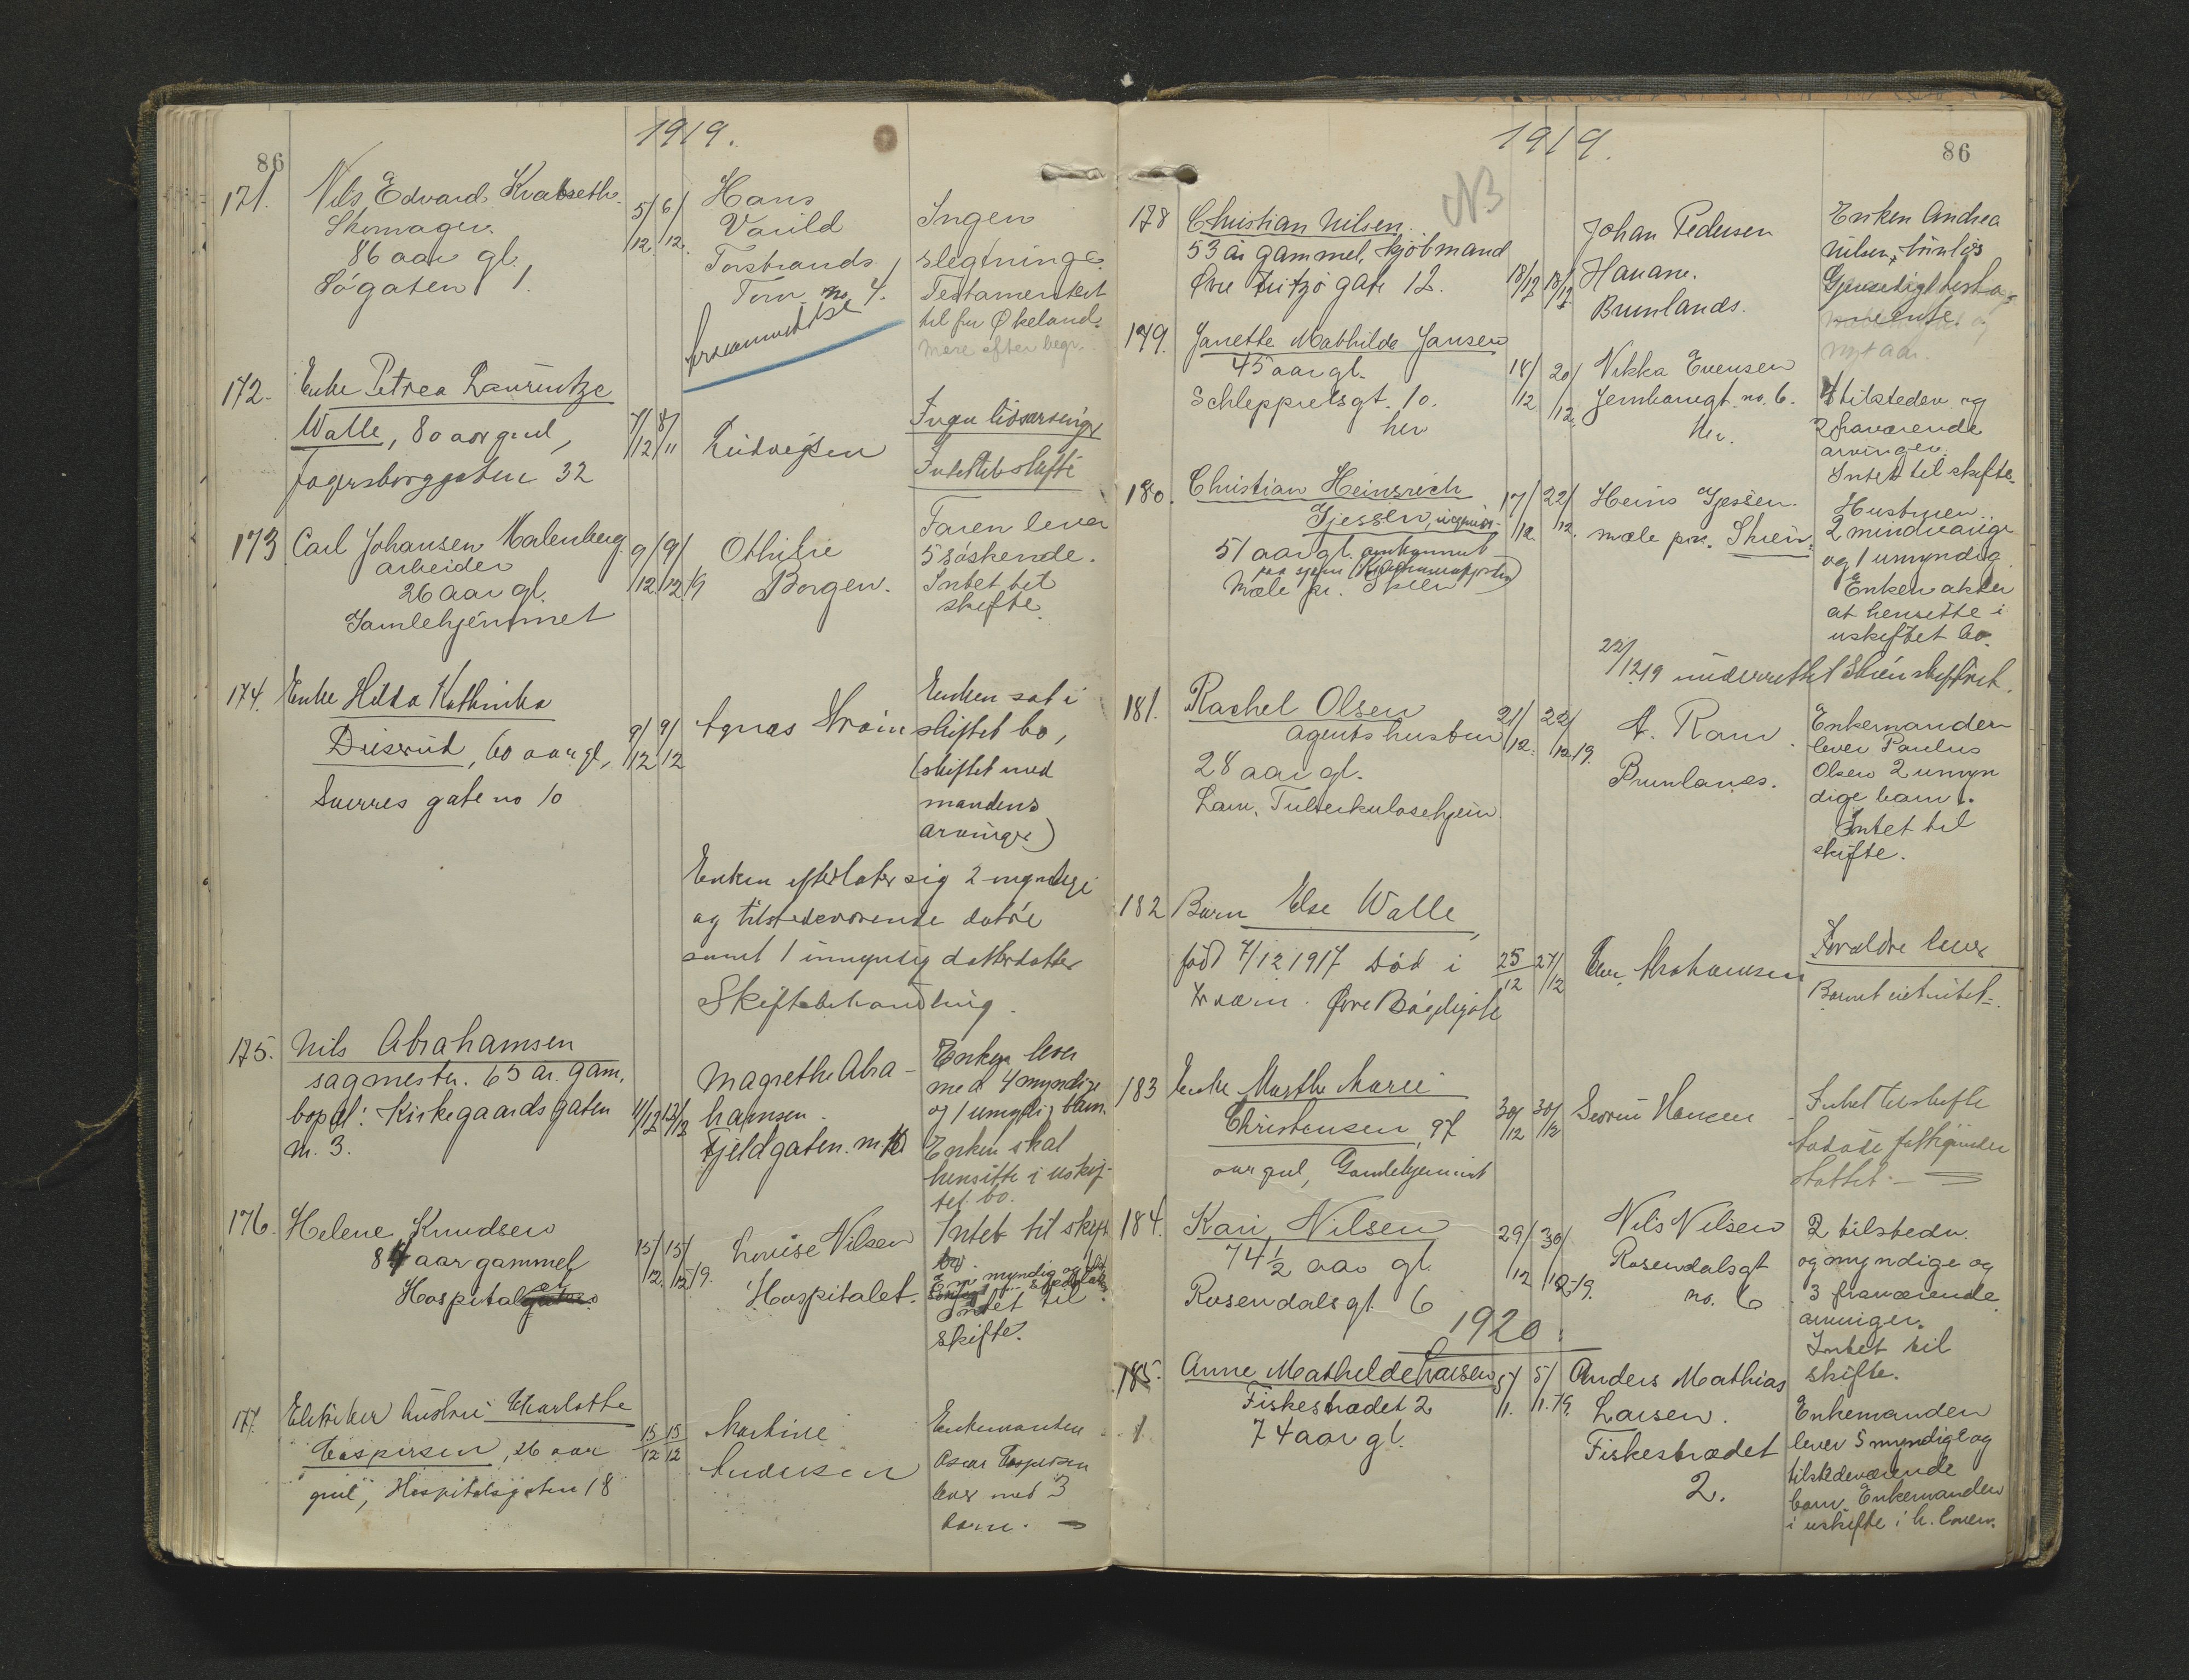 86
1919.
171. Nils Edvard Kvalseth.
Skomager.
86 aar gl.
Løgaten 1.
5/12. 6/12.
Hans
Varild
Torstrands
Torv no 4.
Ingen
slegtninge.
Testamentet
til fru Økeland.
Mere efter begr.
172. Enke Petrea Laurentze
Walle, 80 aar gml,
Jegersborggaten 32
7/12 8/11
Ludvigsen
Ingen livsarvinger
Intet til skifte
173 Carl Johansen Malenberg
arbeider
26 aar gl.
Gamlehjemmet
9/12 9/12 19
Othilie
Borgen.
Faren lever
5 søskende.
Intet til
skifte.
174. Enke Hilda Kathinka
, 60 aar gl,
Sverres gate no 10
9/12 9/12
Agnes Strøm
Enken sat i
skiftet bo,
(skiftet med
mandens
arvinger)
Enken efterlater sig 2 myndige
og tilstedeværende døtre
samt 1 umyndig datterdatter
Skiftebehandling.
175. Nils Abrahamsen
sagmester. 65 år. gam.
bopæl: Kirkegaardsgaten
nr. 3.
11/12 13/12
Magrethe Abra-
hamsen.
Fjeldgaten. nr 10
Enken lever
med 4 myndige
og 1 umyndig barn.
Enken skal
hensitte i uskif-
tet bo.
176. Helene Knudsen
84 aar gammel
Hospitalet
15/12. 15/12 19.
Lovise Nilsen
Hospitalet.
Intet til skifte
myndig og
Intet til
skifte.
177. Charlotte
Caspersen, 26 aar
gml, Hospitalsgaten 18
15/12 15/12
Martine
Andersen
Enkemanden
Oscar Caspersen
lever med 3
barn.
1919.
86
NB
178 Christian Nilsen.
53 år gammel, kjøbmand
Øvre Fritzøgate 12.
18/12 18/12
Johan Pedersen
Havane.
Brunlanes.
Enken Andrea
Nilsen,
Gjensidigt testa-
mente.
nyt aar.
179. Janette Mathilde Jansen
45 aar gl.
Schleppelsgt. 10.
her
18/12 20/12.
Vikka Evensen
Jernbanegt. no. 6.
her.
4 tilsteden og
2 fraværende
arvinger.
Intet til skifte.
180. Christian Heinrich
Gjessen, ingeniør-
51 aar gl. omkommet
paa sjøen
Mæle pr. Skien
17/12 22/12.
Heins Gjessen.
Mæle pr. Skien.
Hustruen.
2 mindreaarige
og 1 umyndig
Enken akter
at hensitte i
uskiftet bo.
22/12 19 underrettet Skien skifteret.
181. Rachel Olsen
agents hustru
28 aar gl.
Larv. Tuberkulosehjem
21/12. 22/12 19.
A. Ram.
Brunlanes.
Enkemanden
lever Paulus
Olsen 2 umyn
dige barn.
Intet til
skifte.
182 Barn Else Walle,
født 7/12 1917 død i
Kvarn. Øvre Bøgdegate
25/12 27/12
Abrahamsen
Forældre lever
Barnet eiet intet.
183 Enke Marthe Marie
Christensen, 97
aar gml, Gamlehjemmet
30/12 30/12
Severin Hansen
Intet til skifte
Avdøde fattigunder
støttet.
184. Kari Nilsen
74 1/2 aar gl.
Rosendalsgt. 6
29/12 30/12 19.
Nils Nilsen
Rosendalsgt
no. 6
2 tilstedev.
og myndige og
3 fraværende
arvinger.
Intet til
skifte.
1920.
185. Anne Mathilde Larsen
Fiskestrædet 2
74 aar gl.
1
5/1. 5/1.
Anders Mathias
Larsen.
Fiskestrædet
2.
Enkemanden
lever 5 myndige og
tilstedeværende
barn. Enkemanden
i uskifte i h. t. loven.